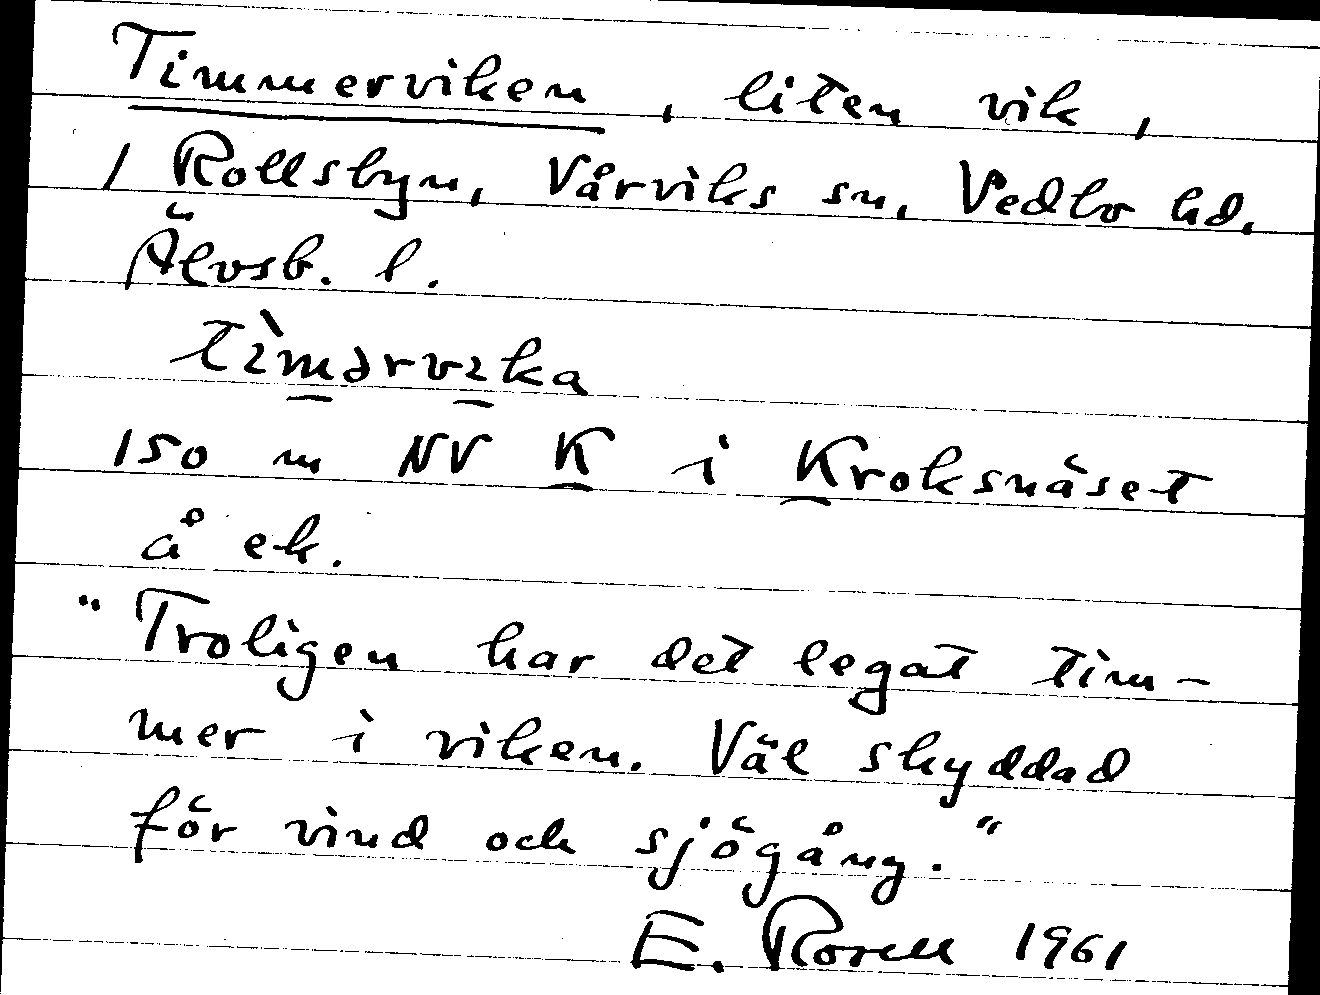 Timmerviken, liten vik,
i Rollsbyn, Vårviks sn, Vedbo hd.
Älvsb. l.
tìmərvika
150 m NV K i Kroksnäset
å ek.
"Troligen har det legat tim-
mer i viken. Väl skyddad
för vind och sjögång."
E. Rorell 1961